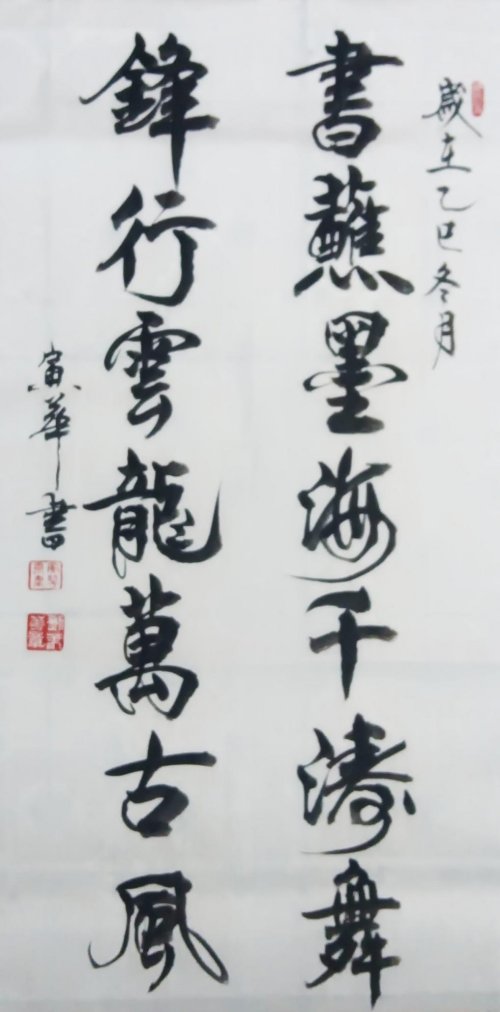 歲在乙巳冬月
書蘸墨海千濤舞
鋒行雲龍萬古風
寅華書